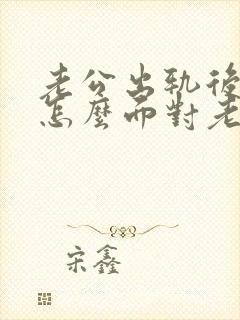 老公出轨後
怎麼面對老
宋鑫